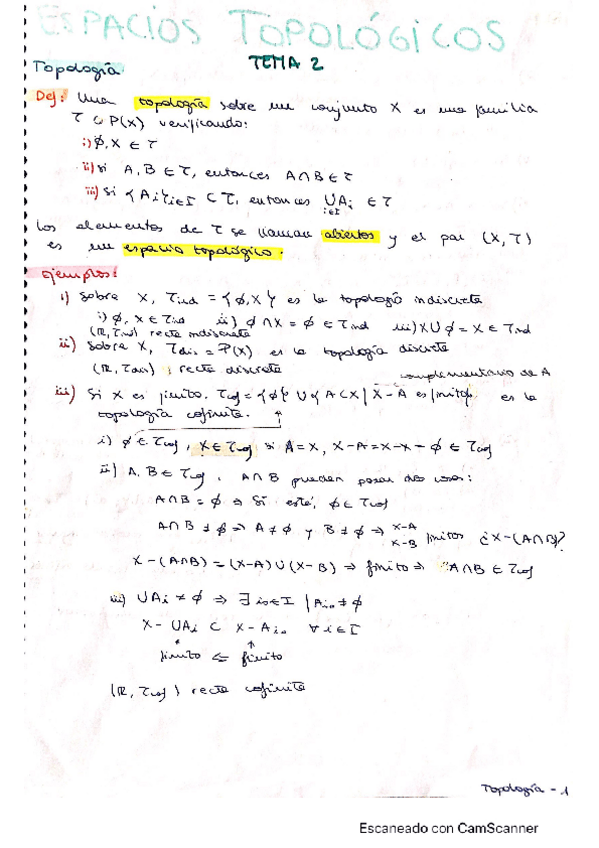 ESPACIOS TOPOLÓGICOS
TEMA 2
Topología
Def: Una topología sobre un conjunto X es una familia
τ ⊂ P(X) verificando:
i) ∅, X ∈ τ
ii) Si A, B ∈ τ, entonces A∩B ∈ τ
iii) Si {Ai}i∈I ⊂ τ, entonces ∪Ai ∈ τ
i∈I
Los elementos de τ se llaman abiertos y el par (X, τ)
es un espacio topológico.
Ejemplos:
i) Sobre X, τind = {∅, X} es la topología indiscreta
i) ∅, X ∈ τind ii) ∅∩X = ∅ ∈ τind iii) X∪∅ = X ∈ τind
(ℝ, τind) recta indiscreta
ii) Sobre X, τdis = P(X) es la topología discreta
(ℝ, τdis) recta discreta
complementario de A
iii) Si X es finito. τcof = {∅} ∪ {A ⊂ X | X-A es finito} es la
topología cofinita.
i) ∅ ∈ τcof, X ∈ τcof si A = X, X-A = X-X = ∅ ∈ τcof
ii) A, B ∈ τcof, A∩B pueden pasar dos cosas:
A∩B = ∅ ⇒ Si está, ∅ ∈ τcof
A∩B ≠ ∅ ⇒ A ≠ ∅ y B ≠ ∅ ⇒ X-A X-B finitos ¿X-(A∩B)?
X-(A∩B) = (X-A)∪(X-B) ⇒ finito ⇒ A∩B ∈ τcof
iii) ∪Ai ≠ ∅ ⇒ ∃ i0 ∈ I | Ai0 ≠ ∅
X - ∪Ai ⊂ X - Ai0 ∀ i ∈ I
finito ⇐ finito
(ℝ, τcof) recta cofinita
Topología - 1
Escaneado con CamScanner